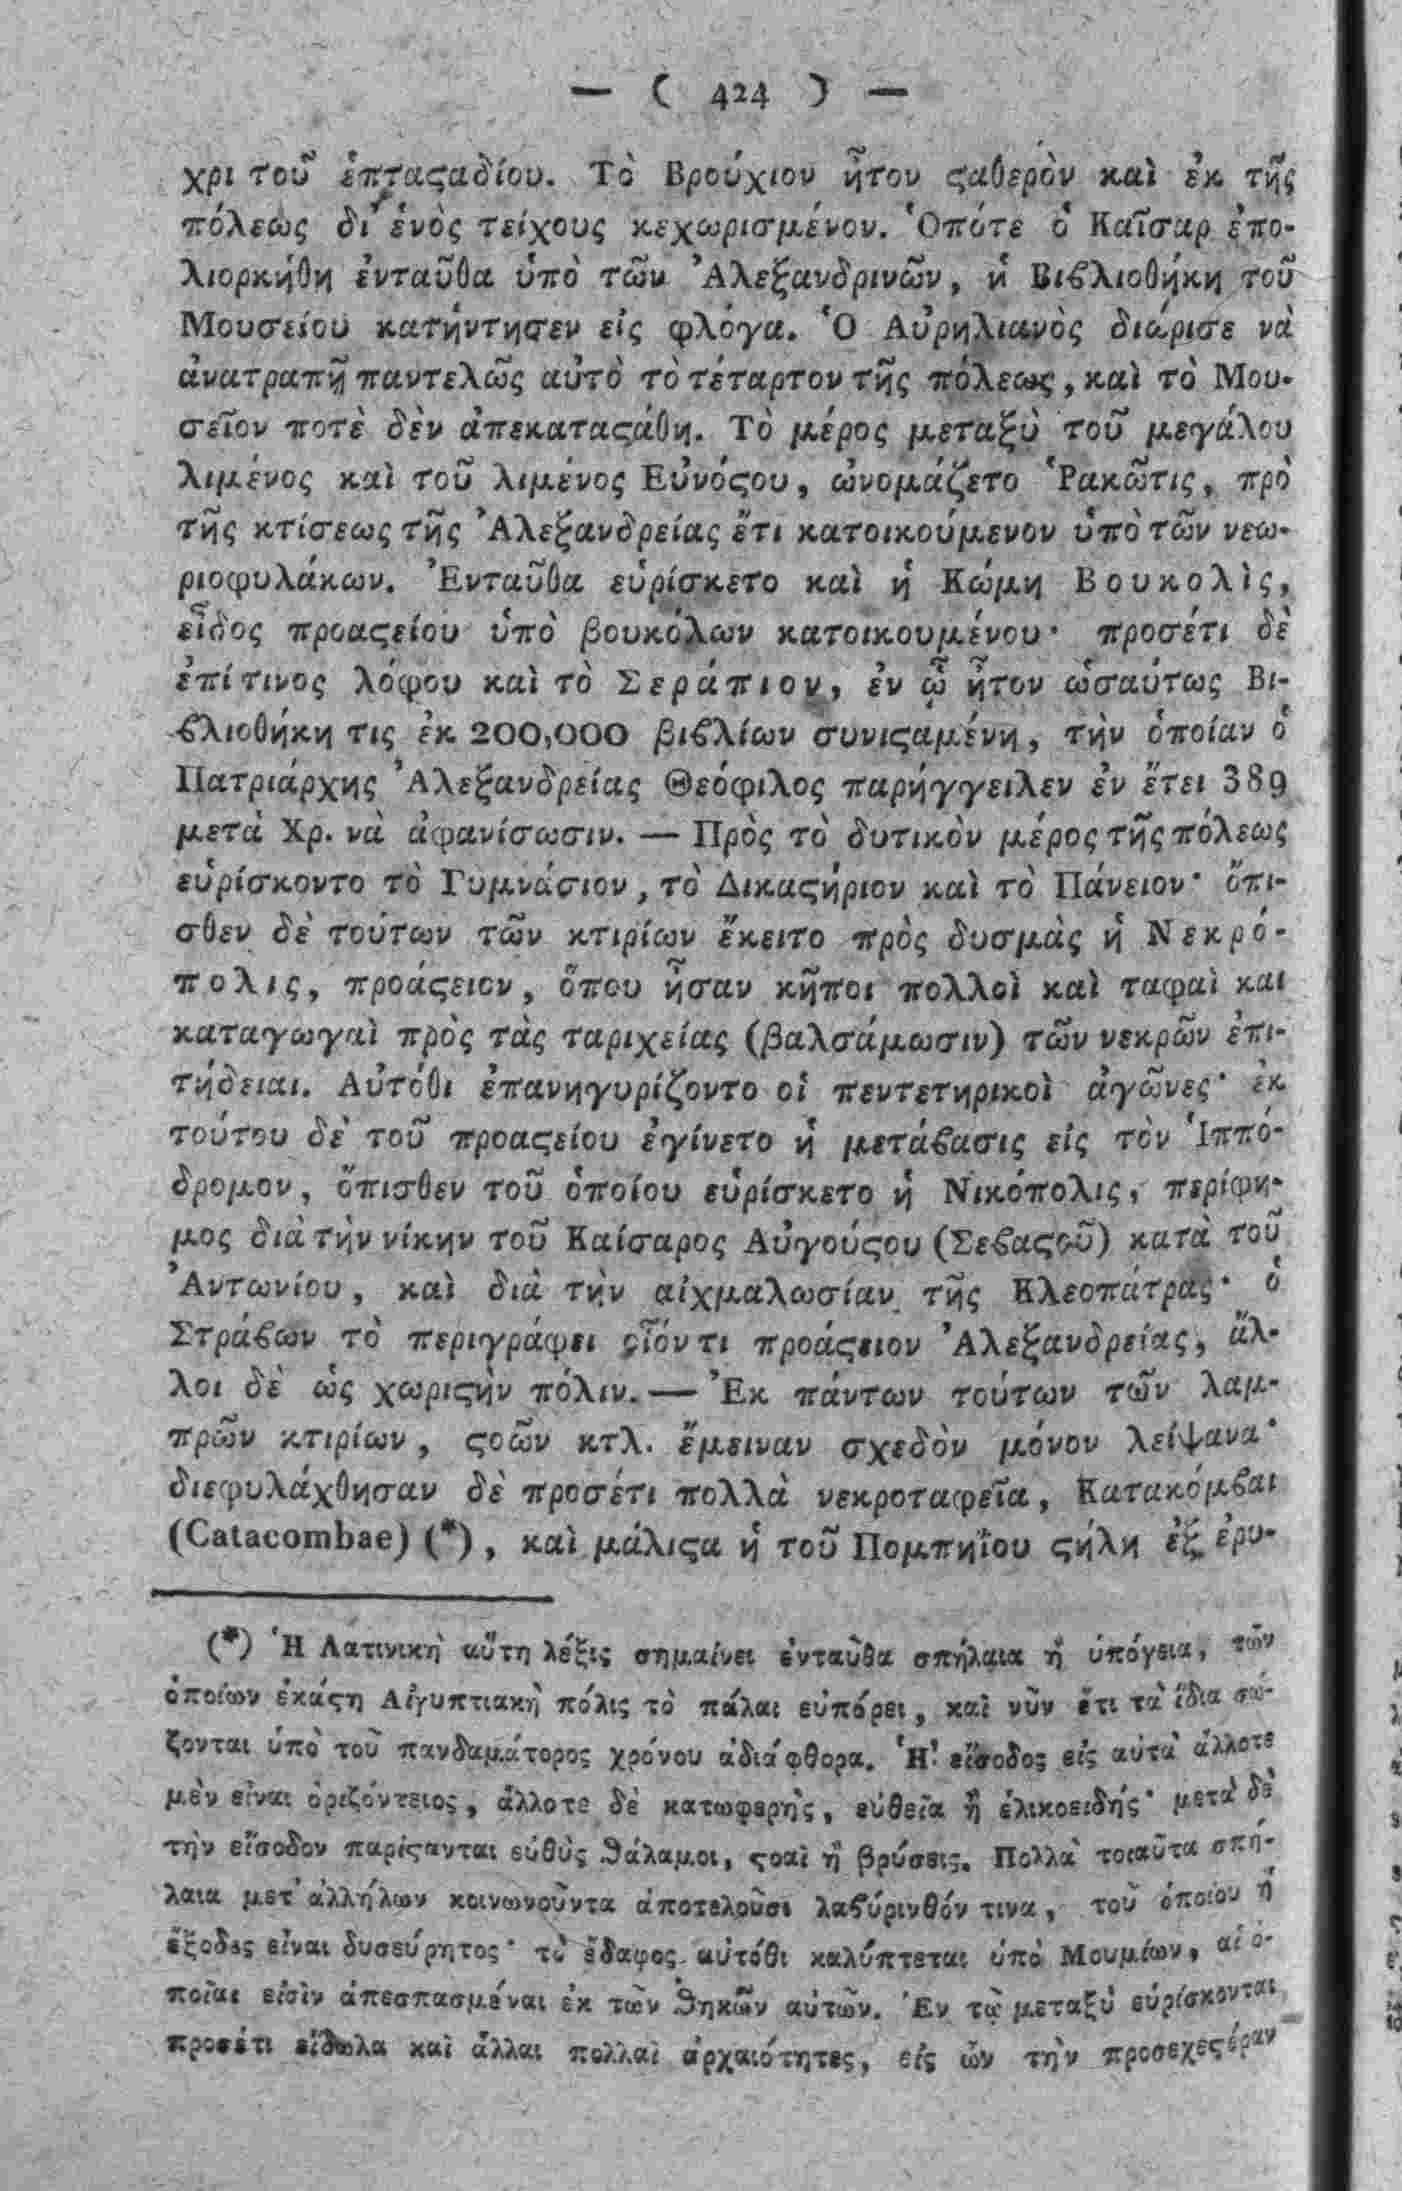 — ( 424 ) —
χρι τοῦ ἑπταϛαδίου. Τὸ Βρούχιον ἦτον ϛαθερὸν καὶ ἐκ τῆς
πόλεως δι' ἑνὸς τείχους κεχωρισμένον. Ὁπότε ὁ Καῖσαρ ἐπο-
λιορκήθη ἐνταῦθα ὑπὸ τῶν Ἀλεξανδρινῶν, ἡ Βιϐλιοθήκη τοῦ
Μουσείου κατήντησεν εἰς φλόγα. Ὁ Αὐρηλιανὸς διώρισε νὰ
ἀνατραπῇ παντελῶς αὐτὸ τὸ τέταρτον τῆς πόλεως, καὶ τὸ Μου-
σεῖον ποτὲ δὲν ἀπεκαταϛάθη. Τὸ μέρος μεταξὺ τοῦ μεγάλου
λιμένος καὶ τοῦ λιμένος Εὐνόϛου, ὠνομάζετο Ῥακῶτις, πρὸ
τῆς κτίσεως τῆς Ἀλεξανδρείας ἔτι κατοικούμενον ὑπὸ τῶν νεω-
ριοφυλάκων. Ἐνταῦθα εὑρίσκετο καὶ ἡ Κώμη Βουκολὶς,
εἶδος προαϛείου ὑπὸ βουκόλων κατοικουμένου· προσέτι δὲ
ἐπί τινος λόφου καὶ τὸ Σεράπιον, ἐν ᾧ ἦτον ὡσαύτως Βι-
ϐλιοθήκη τις ἐκ 200,000 βιϐλίων συνιϛαμένη, τὴν ὁποίαν ὁ
Πατριάρχης Ἀλεξανδρείας Θεόφιλος παρήγγειλεν ἐν ἔτει 389
μετὰ Χρ. νὰ ἀφανίσωσιν. — Πρὸς τὸ δυτικὸν μέρος τῆς πόλεως
εὑρίσκοντο τὸ Γυμνάσιον, τὸ Δικαϛήριον καὶ τὸ Πάνειον· ὄπι-
σθεν δὲ τούτων τῶν κτιρίων ἔκειτο πρὸς δυσμὰς ἡ Νεκρό-
πολις, προάϛειον, ὅπου ἦσαν κῆποι πολλοὶ καὶ ταφαὶ και
καταγωγαὶ πρὸς τὰς ταριχείας (βαλσάμωσιν) τῶν νεκρῶν ἐπι-
τήδειαι. Αὐτόθι ἐπανηγυρίζοντο οἱ πεντετηρικοὶ ἀγῶνες· ἐκ
τούτου δὲ τοῦ προαϛείου ἐγίνετο ἡ μετάϐασις εἰς τὸν Ἱππό-
δρομον, ὄπισθεν τοῦ ὁποίου εὑρίσκετο ἡ Νικόπολις, περίφη-
μος διὰ τὴν νίκην τοῦ Καίσαρος Αὐγούϛου (Σεϐαϛοῦ) κατὰ τοῦ
Ἀντωνίου, καὶ διὰ τὴν αἰχμαλωσίαν τῆς Κλεοπάτρας· ὁ
Στράϐων τὸ περιγράφει οἷόν τι προάϛειον Ἀλεξανδρείας, ἄλ-
λοι δὲ ὡς χωριϛὴν πόλιν. — Ἐκ πάντων τούτων τῶν λαμ-
πρῶν κτιρίων, ϛοῶν κτλ. ἔμειναν σχεδὸν μόνον λείψανα·
διεφυλάχθησαν δὲ προσέτι πολλὰ νεκροταφεῖα, Κατακόμϐαι
(Catacombae) (*), καὶ μάλιϛα ἡ τοῦ Πομπηΐου ϛήλη ἐξ ἐρυ-
(*) Ἡ Λατινικὴ αὕτη λέξις σημαίνει ἐνταῦθα σπήλαια ἢ ὑπόγεια, τῶν
ὁποίων ἑκάϛη Αἰγυπτιακὴ πόλις τὸ πάλαι εὐπόρει, καὶ νῦν ἔτι τὰ ἴδια σώ-
ζονται ὑπὸ τοῦ πανδαμάτορος χρόνου ἀδιάφθορα. Ἡ εἴσοδος εἰς αὐτὰ ἄλλοτε
μὲν εἶναι ὁριζόντειος, ἄλλοτε δὲ κατωφερὴς, εὐθεῖα ἢ ἑλικοειδής· μετὰ δὲ
τὴν εἴσοδον παρίϛανται εὐθὺς ϑάλαμοι, ϛοαὶ ἢ βρύσεις. Πολλὰ τοιαῦτα σπή-
λαια μετ' ἀλλήλων κοινωνοῦντα ἀποτελοῦσι λαϐύρινθόν τινα, τοῦ ὁποίου ἡ
ἔξοδος εἶναι δυσεύρητος· τὸ ἔδαφος αὐτόθι καλύπτεται ὑπὸ Μουμίων, αἱ ὁ-
ποῖαι εἰσὶν ἀπεσπασμέναι ἐκ τῶν ϑηκῶν αὑτῶν. Ἐν τῷ μεταξὺ εὑρίσκονται
προσέτι εἴδωλα καὶ ἄλλαι πολλαὶ ἀρχαιότητες, εἰς ὧν τὴν προσεχεϛέραν